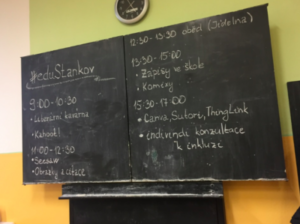 #eduStankov
9:00 - 10:30
• Literární kavárna
• Kahoot!
11:00 - 12:30
• Seesaw
• Obrázky a citace
12:30 - 13:30 oběd (jídelna)
13:30 - 15:00
• Zápisy ve škole
• Komiksy
15:30 - 17:00
• Canva, Sutori, ThingLink
• individuál konzultace
k inkluzi